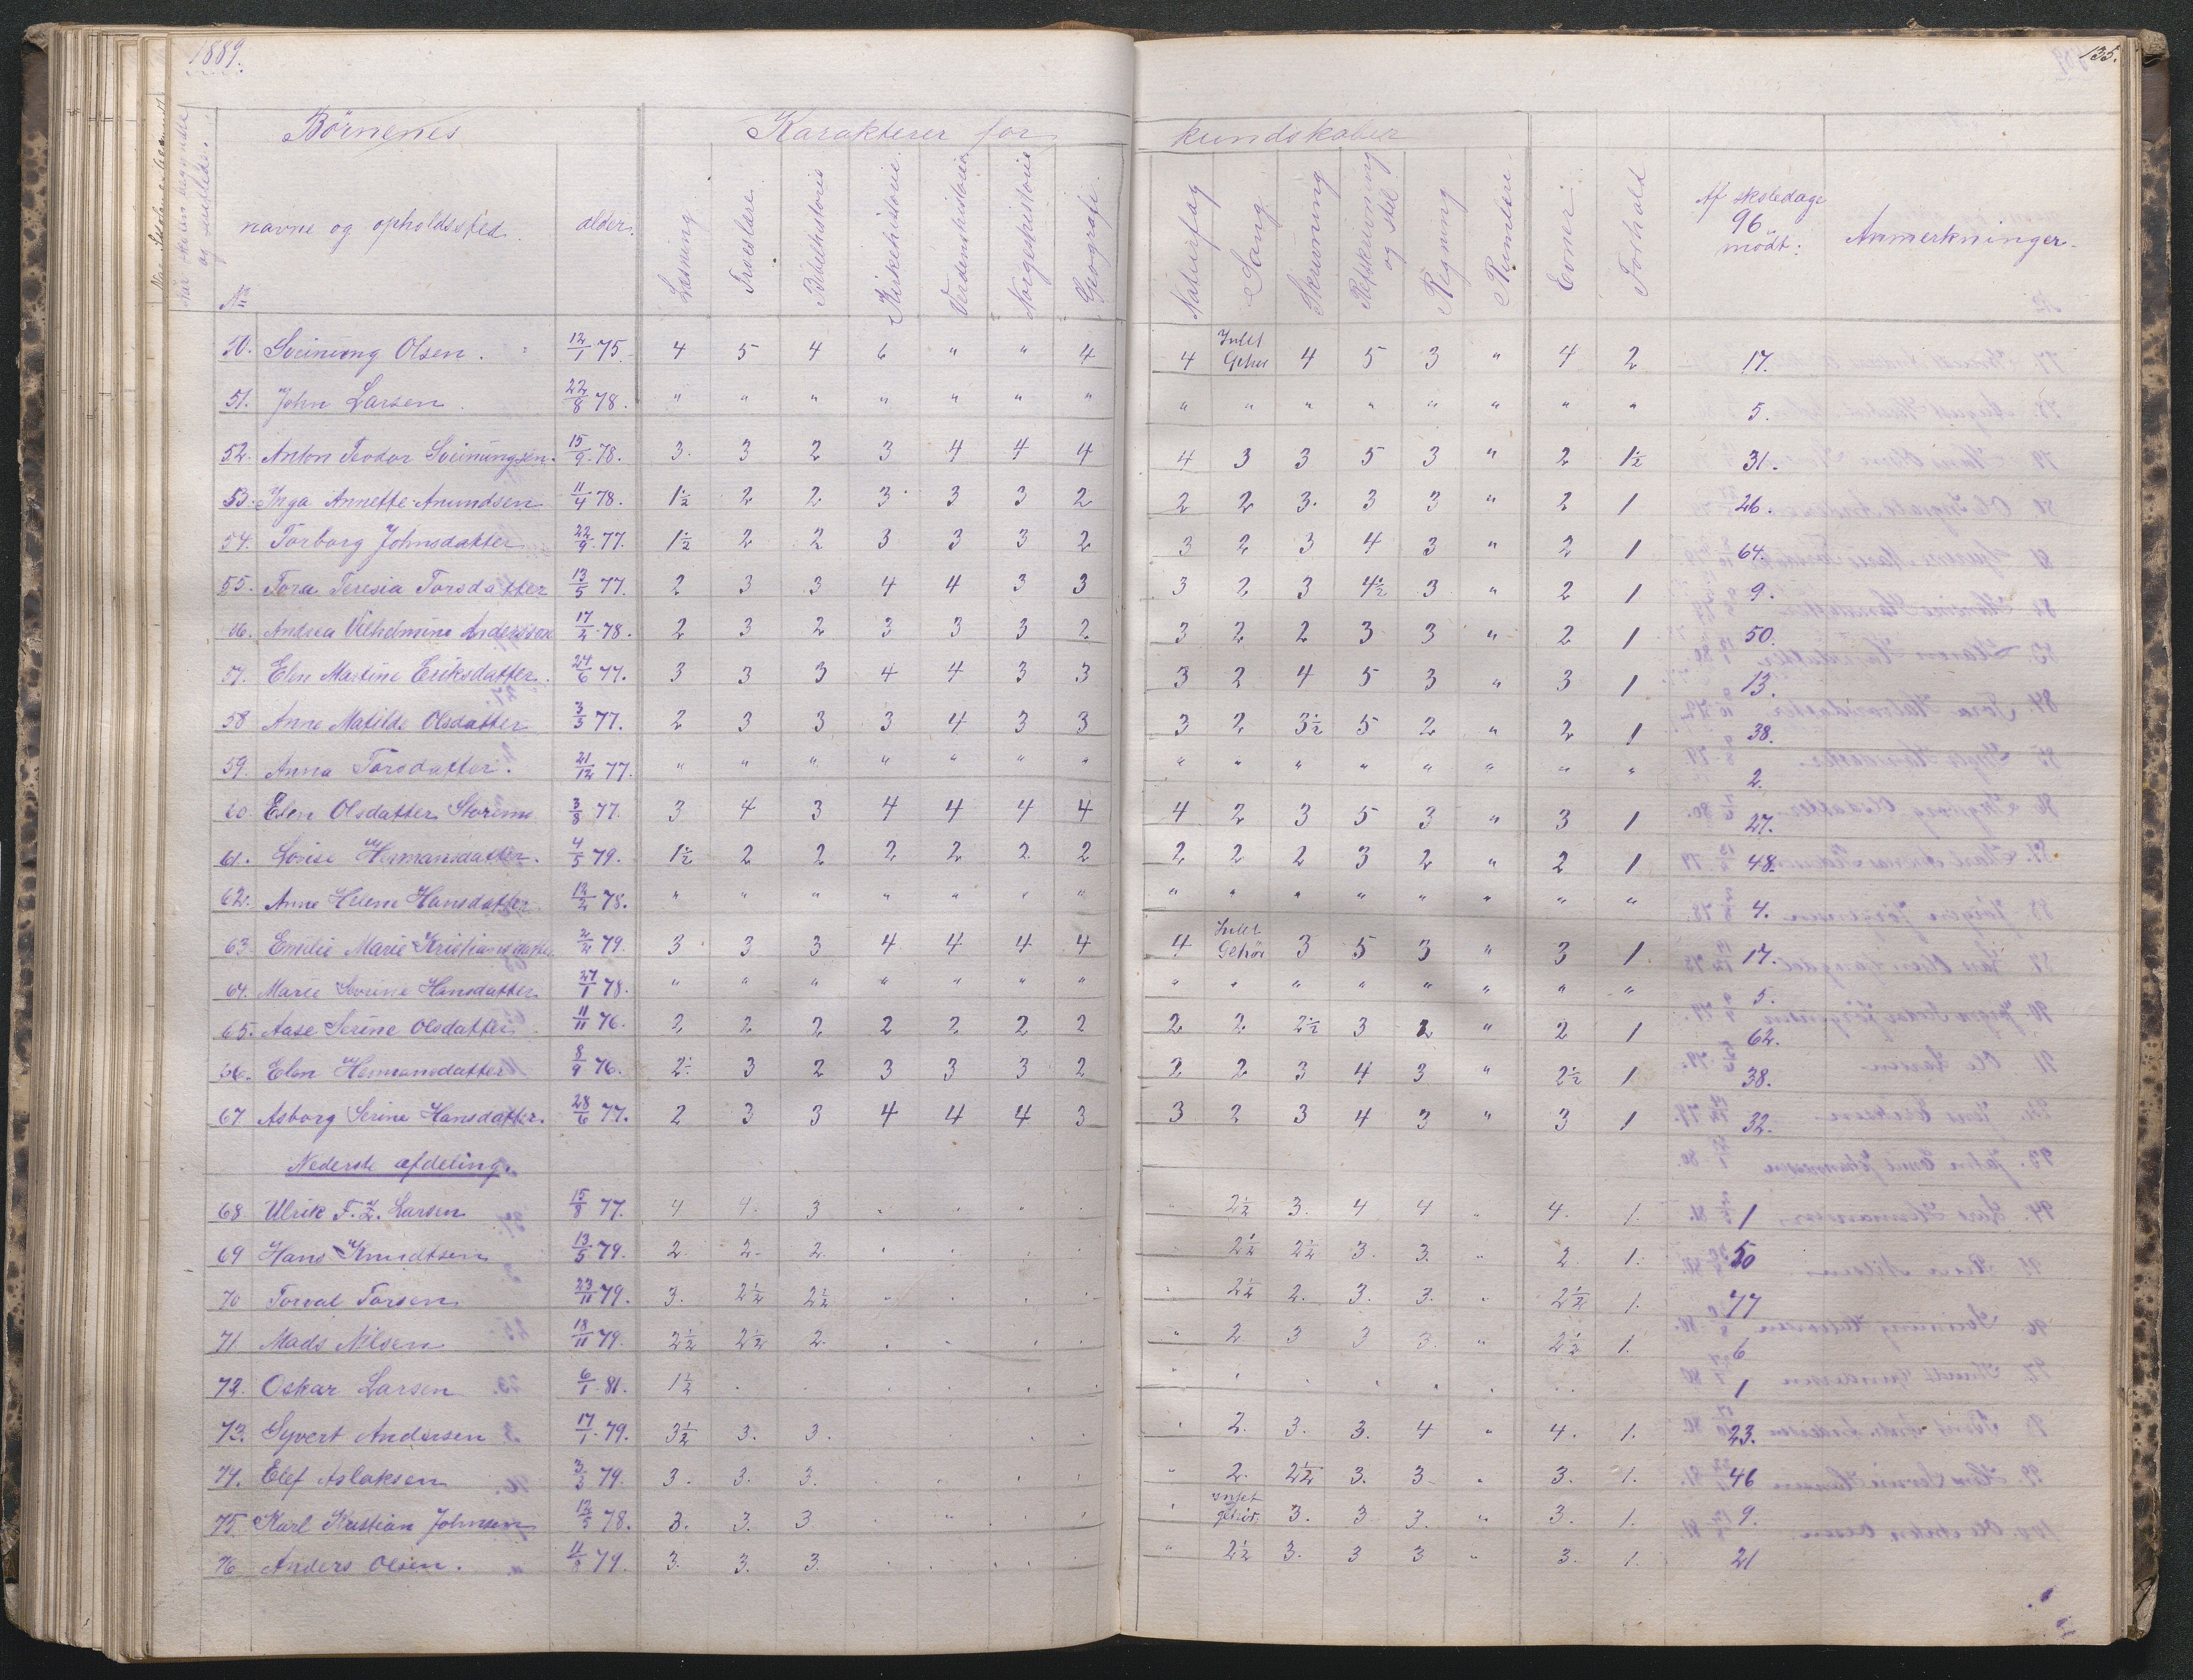 1889.
135.
Börnenes
Karakterer for
kundskaber
No
navne og opholdssted.
alder.
Læsning
Troeslære
Bibelhistorie
Kirkehistorie.
Verdenshistorie
Norgeshistorie
Geografi.
Naturfag
Sang
Skrivning
Retskrivning og stil
Regning
Evner
Forhold
Af skoledage 96 mödt:
Anmerkninger.
50. Sveinung Olsen. 12/1 75. 4 5 4 6 " " 4 4 Intet Gehör 4 5 3 " 4 2 17.
51. John Larsen 22/8 78. " " " " " " " " " " " " " " " 5.
52. Anton Teodor Sveinungsen. 15/9 78. 3. 3 2 3 4 4 4 4 3 3 5 3 " 2 1½ 31.
53. Inga Annette Amundsen 11/4 78. 1½ 2 2 3 3 3 2 2 2 3. 3 3 " 2 1 26.
54. Torborg Johnsdatter 22/9 77. 1½ 2 2 3 3 3 2 3 2 3 4 3 " 2 1 64.
55. Tora Teresia Torsdatter 13/5 77. 2 3 3 4 4 3 3 3 2 3 4½ 3 " 2 1 9.
56. Andrea Vilhelmine Anderssen 17/2 78. 2 3 2 3 3 3 2 3 2 2 3 3 " 2 1 50.
57. Elen Martine Eriksdatter. 24/6 77. 3 3 3 4 4 3 3 3 2 4 5 3 " 3 1 13.
58 Anne Matilde Olsdatter 3/3 77. 2 3 3 3 4 3 3 3 2 3½ 5 2 " 2 1 38.
59. Anna Torsdatter. 21/12 77. " " " " " " " " " " " " " " " 2.
60 Elen Olsdatter 3/8 77. 3 4 3 4 4 4 4 4 2 3 5 3 " 3 1 27.
61. Lovise Hermansdatter. 4/5 79. 1½ 2 2 2 2 2 2 2 2 2 3 2 " 2 1 48.
62. Anne Helene Hansdatter 12/2 78. " " " " " " " " " " " " " " " 4.
63. Emilie Marie Kristiansdatter 2/2 79. 3 3 3 4 4 4 4 4 Intet Gehör 3 5 3 " 3 1 17.
64. Marie Severine Hansdatter 27/1 78. " " " " " " " " " " " " " " " 5.
65. Aase Serine Olsdatter 11/11 76. 2 2 2 2 2 2 2 2 2 2½ 3 2 " 2 1 62.
66. Elen Hermansdatter 8/9 76. 2½ 3 2 3 3 3 2 2 2 3 4 3 " 2½ 1 38.
67 Asborg Serine Hansdatter. 28/6 77. 2 3 3 4 4 4 3 3 2 3 4 3 " 3 1 32.
Nederste afdeling.
68 Ulrik F. Z. Larsen 15/8 77. 4 4. 3 " " " . " 2½ 3. 4 4 " 4. 1. 1
69 Hans Knudtsen 13/5 79. 2. 2. 2. . . . . . 2½ 2½ 3. 3. " 2. 1. 50
70 Torval Torsen 23/11 79. 3. 2½ 2½ " . . . . 2½ 2. 3. 3. " 2½ 1. 77
71. Mads Nilsen 18/11 79. 2½ 2½ 2. . . . . " 2 3 3 3. " 2½ 1. 6
72. Oskar Larsen 6/1 81. 1½ . . . . . . " . . . . . . . 1
73. Syvert Andersen 17/1 79. 3½ 3. 3. . . . . . 2. 3. 3. 4 " 4. 1. 23.
74. Elef Aslaksen 3/3 79. 3. 3. 3. . . . . " 2. 2½ 3. 3 . 3. 1. 46
75. Karl Kristian Johnsen 12/5 78. 3. 3. 3 . " . . . intet gehör. 3. 3 3. " 3. 1. 9.
76 Anders Olsen. 11/8 79. 3. 3. 3. . . . . " 2½ 3. 3 3 " 3. 1. 21